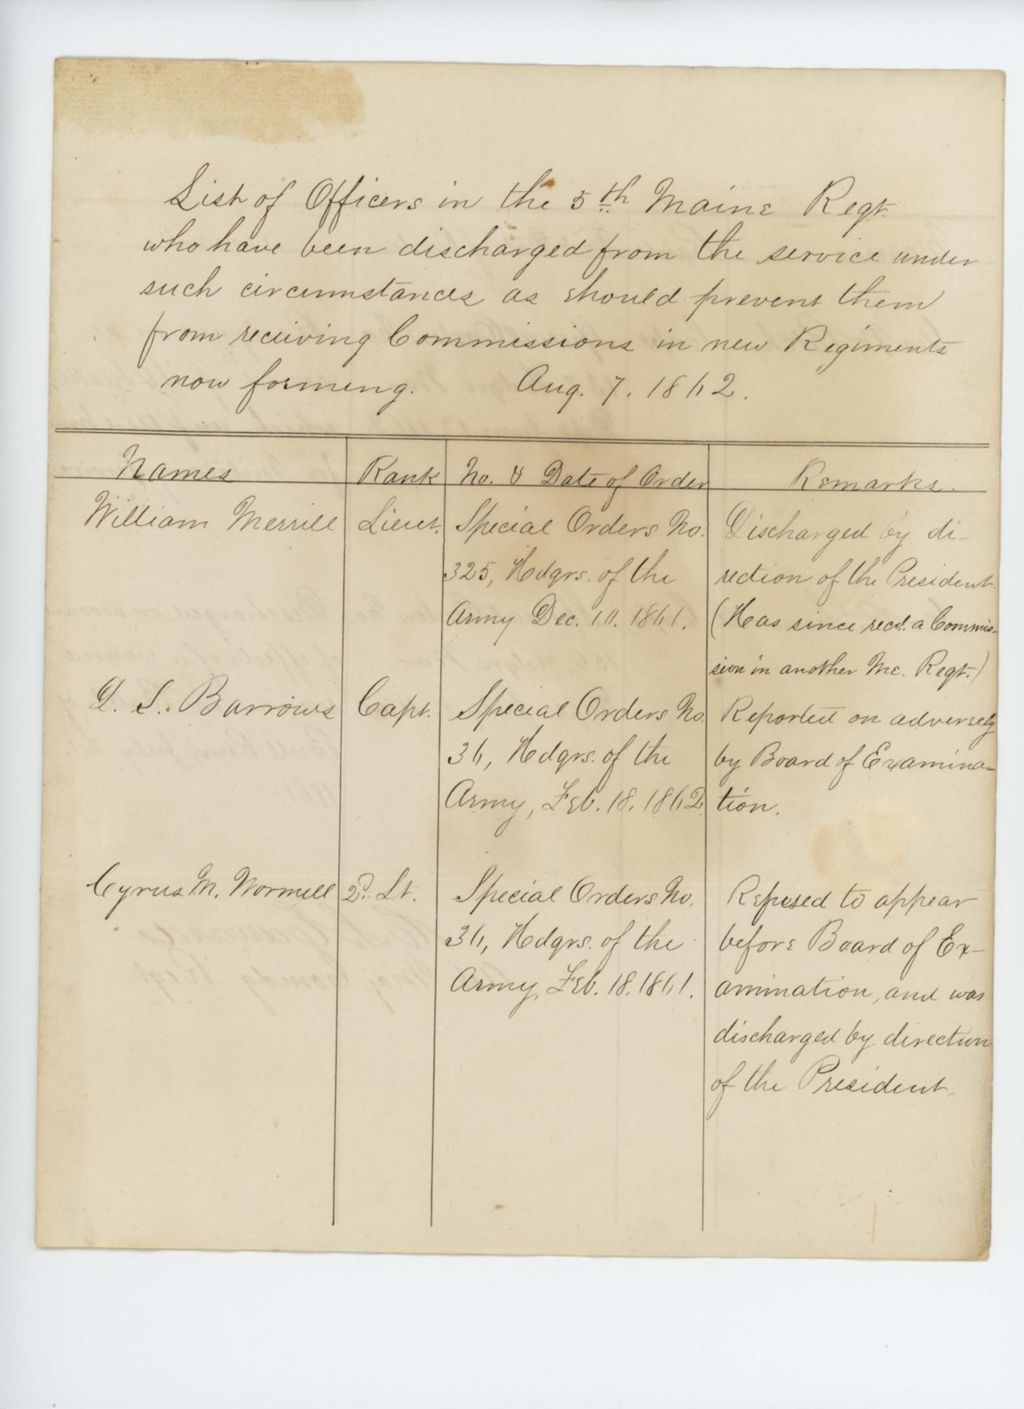 List of Officers in the 5th Maine Regt.
who have been discharged from the service under
such circumstances as should prevent them
from receiving Commissions in new Regiments
now forming. Aug. 7. 1862.
Names Rank No. & Date of Order Remarks.
William Merrill Lieut. Special Orders No. Discharged by di-
325, Hdqrs. of the rection of the President.
Army Dec. 10. 1861. (Has since recd. a Commis-
sion in another Me. Regt.)
S. Barrows Capt. Special Orders No. Reported on adversely
36, Hdqrs. of the by Board of Examina-
Army, Feb. 18. 1862 tion.
Cyrus M. Wormell 2d. Lt. Special Orders No. Refused to appear
36, Hdqrs. of the before Board of Ex-
Army, Feb. 18. 1861. amination, and was
discharged by direction
of the President.